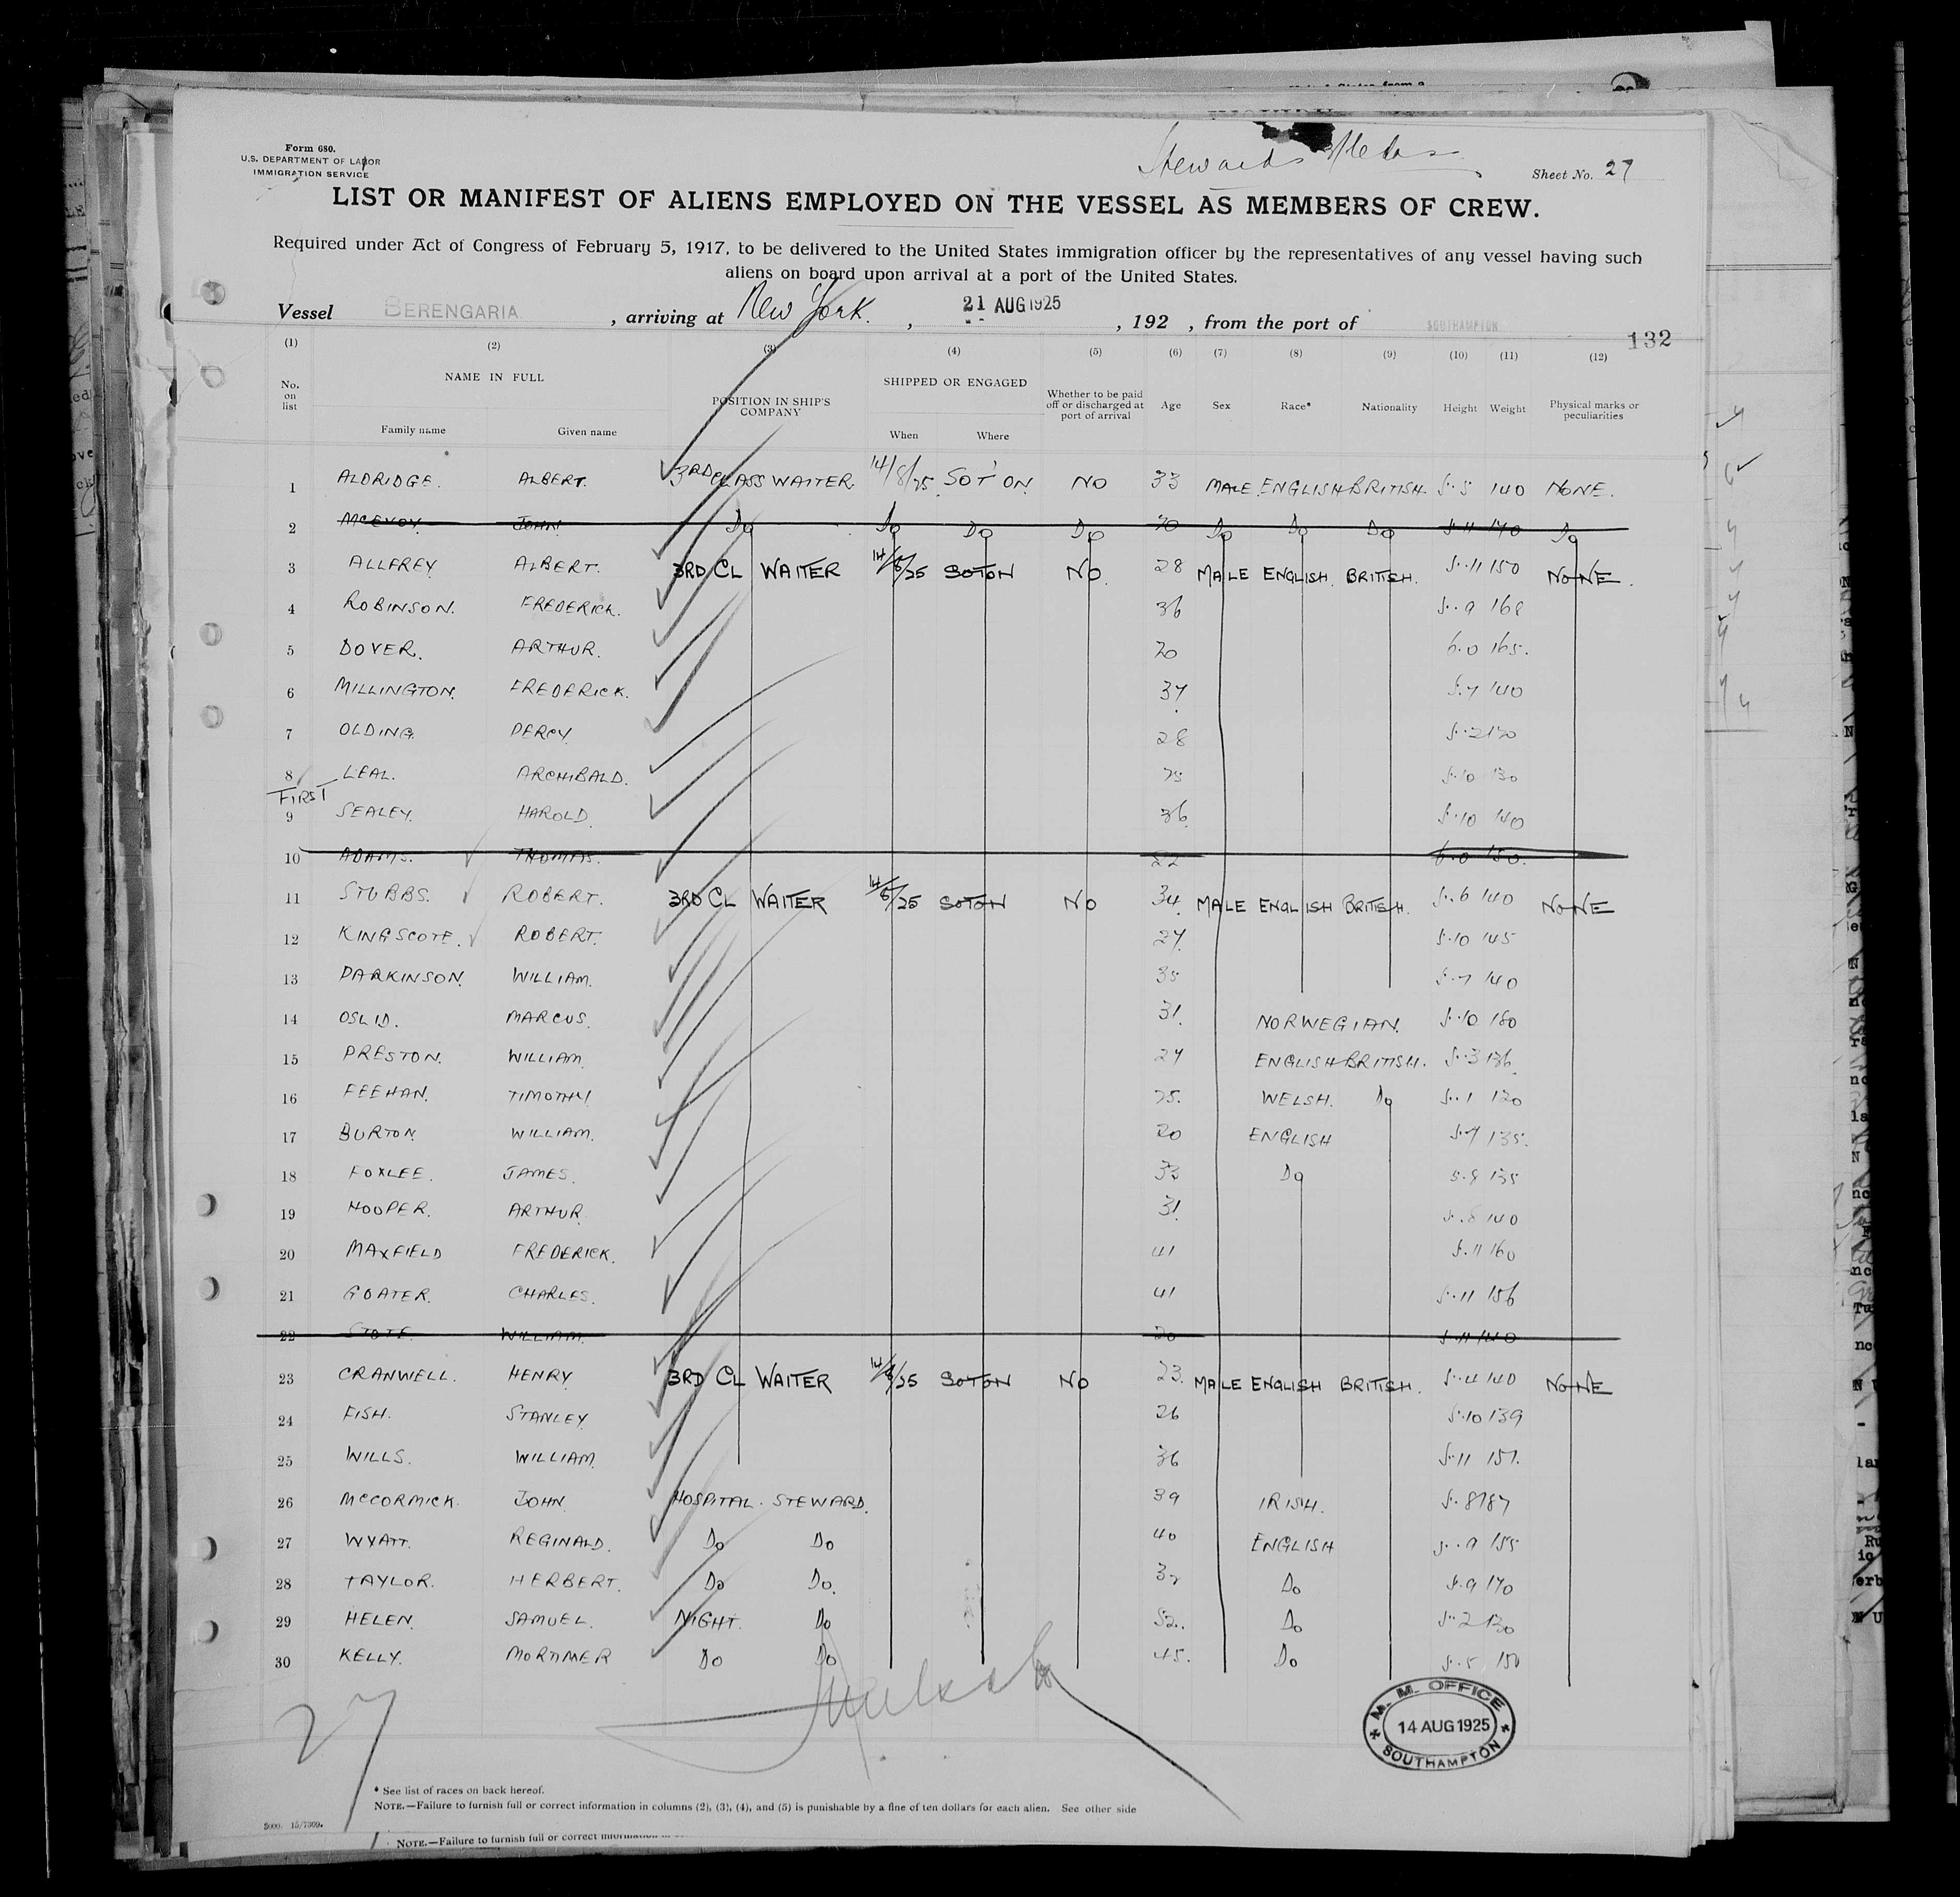 Form 680.
U.S. DEPARTMENT OF LABOR
IMMIGRATION SERVICE
Stewards
Sheet No. 27
LIST OR MANIFEST OF ALIENS EMPLOYED ON THE VESSEL AS MEMBERS OF CREW.
Required under Act of Congress of February 5, 1917, to be delivered to the United States immigration officer by the representatives of any vessel having such
aliens on board upon arrival at a port of the United States.
Vessel BERENGARIA, arriving at New York., 21 AUG 1925, 192 , from the port of SOUTHAMPTON
132
(1) (2) (3) (4) (5) (6) (7) (8) (9) (10) (11) (12)
No. on list NAME IN FULL POSITION IN SHIP'S COMPANY SHIPPED OR ENGAGED Whether to be paid off or discharged at port of arrival Age Sex Race* Nationality Height Weight Physical marks or peculiarities
Family name Given name When Where
1 ALDRIDGE. ALBERT. 3RD CLASS WAITER. 14/8/25. SOT'ON. NO 33 MALE. ENGLISH BRITISH. 5.5 140 NONE.
2 MCEVOY. JOHN Do Do Do Do 30 Do Do Do 5.11 170 Do
3 ALLFREY ALBERT. 3RD CL WAITER 14/8/25 SOTON NO. 28 MALE ENGLISH. BRITISH. 5.11 150 NONE.
4 ROBINSON. FREDERICK. 36 5.9 168
5 DOVER. ARTHUR. 6.0 165.
6 MILLINGTON. FREDERICK. 37 5.7 140
7 OLDING. PERCY. 28 5.2
8 LEAL. ARCHIBALD. 5.10 130
FIRST
9 SEALEY. HAROLD. 36. 5.10 140
10 ADAMS. THOMAS. 6.0 150.
11 STUBBS. ROBERT. 3RD CL WAITER 14/8/25 SOTON NO 34. MALE ENGLISH BRITISH. 5.6 140 NONE
12 KINGSCOTE. ROBERT. 27. 5.10 145
13 PARKINSON. WILLIAM. 35 5.7 140
14 OSLID. MARCUS. 31. NORWEGIAN. 5.10 180
15 PRESTON. WILLIAM. 27 ENGLISH BRITISH. 5.3 136.
16 FEEHAN. TIMOTHY 25. WELSH. Do 5.1 120
17 BURTON. WILLIAM. 20 ENGLISH 5.7 135.
18 FOXLEE. JAMES. 33 Do 5.8 135
19 HOOPER. ARTHUR. 31. 5.8 140
20 MAXFIELD FREDERICK. 41 5.11 160
21 GOATER. CHARLES. 41 5.11 156
22 STOTE. WILLIAM. 20 5.11 140
23 CRANWELL. HENRY 3RD CL WAITER 14/8/25 SOTON NO 23. MALE ENGLISH BRITISH. 5.4 140 NONE
24 FISH. STANLEY. 26 5.10 139
25 WILLS. WILLIAM. 36 5.11 157.
26 MCCORMICK. JOHN. HOSPITAL. STEWARD. 39 IRISH. 5.8 187
27 WYATT. REGINALD. Do Do 40 ENGLISH 5.9 155
28 TAYLOR. HERBERT. Do Do. Do 5.9 170
29 HELEN. SAMUEL. NIGHT. Do 52.. Do 5.2 130
30 KELLY. MORTIMER Do Do 45. Do 5.5 150
27
M. M. OFFICE
14 AUG 1925
SOUTHAMPTON
* See list of races on back hereof.
NOTE.—Failure to furnish full or correct information in columns (2), (3), (4), and (5) is punishable by a fine of ten dollars for each alien. See other side
5000. 15/7309.
NOTE.—Failure to furnish full or correct information